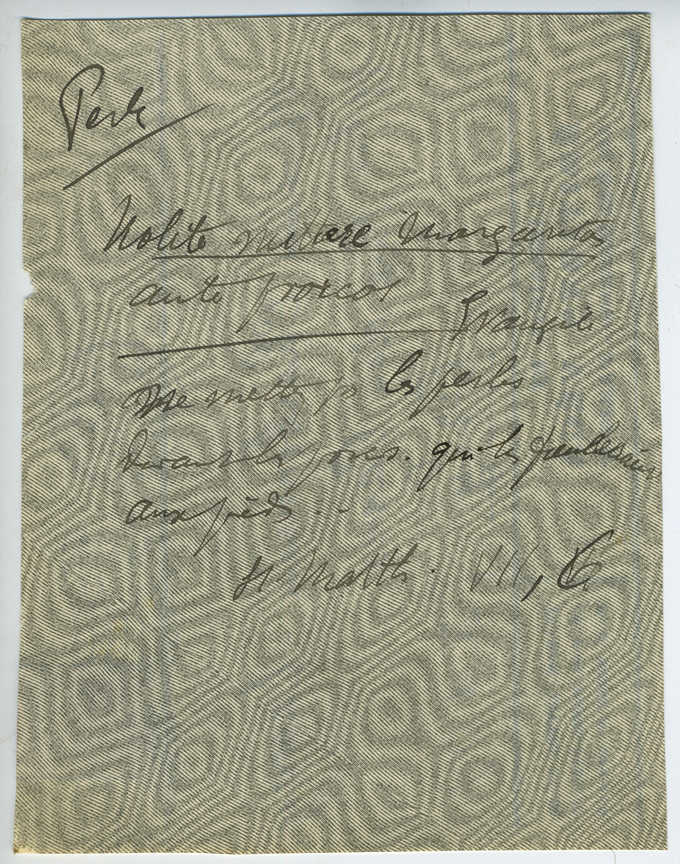 Perle
Nolite mittere Margaritas
ante porcos
Evangile
Ne mettez pas les perles
devant les porcs. qui les fouleraient
aux pieds ...
St Matth. VII, 6